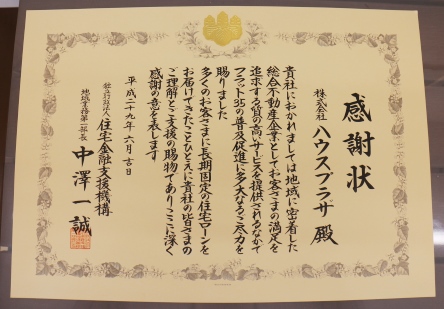 感謝状
株式会社 ハウスプラザ 殿
貴社におかれましては地域に密着した
総合不動産企業としてお客さまの満足を
追求する質の高いサービスを提供されるなかで
フラット35の普及促進に多大なるご尽力を
賜りました
多くのお客さまに長期固定の住宅ローンを
お届けできたこともひとえに貴社の皆さまの
ご理解とご支援の賜物でありここに深く
感謝の意を表します
平成二十九年六月吉日
独立行政法人 住宅金融支援機構
地域業務第一部長
中澤一誠